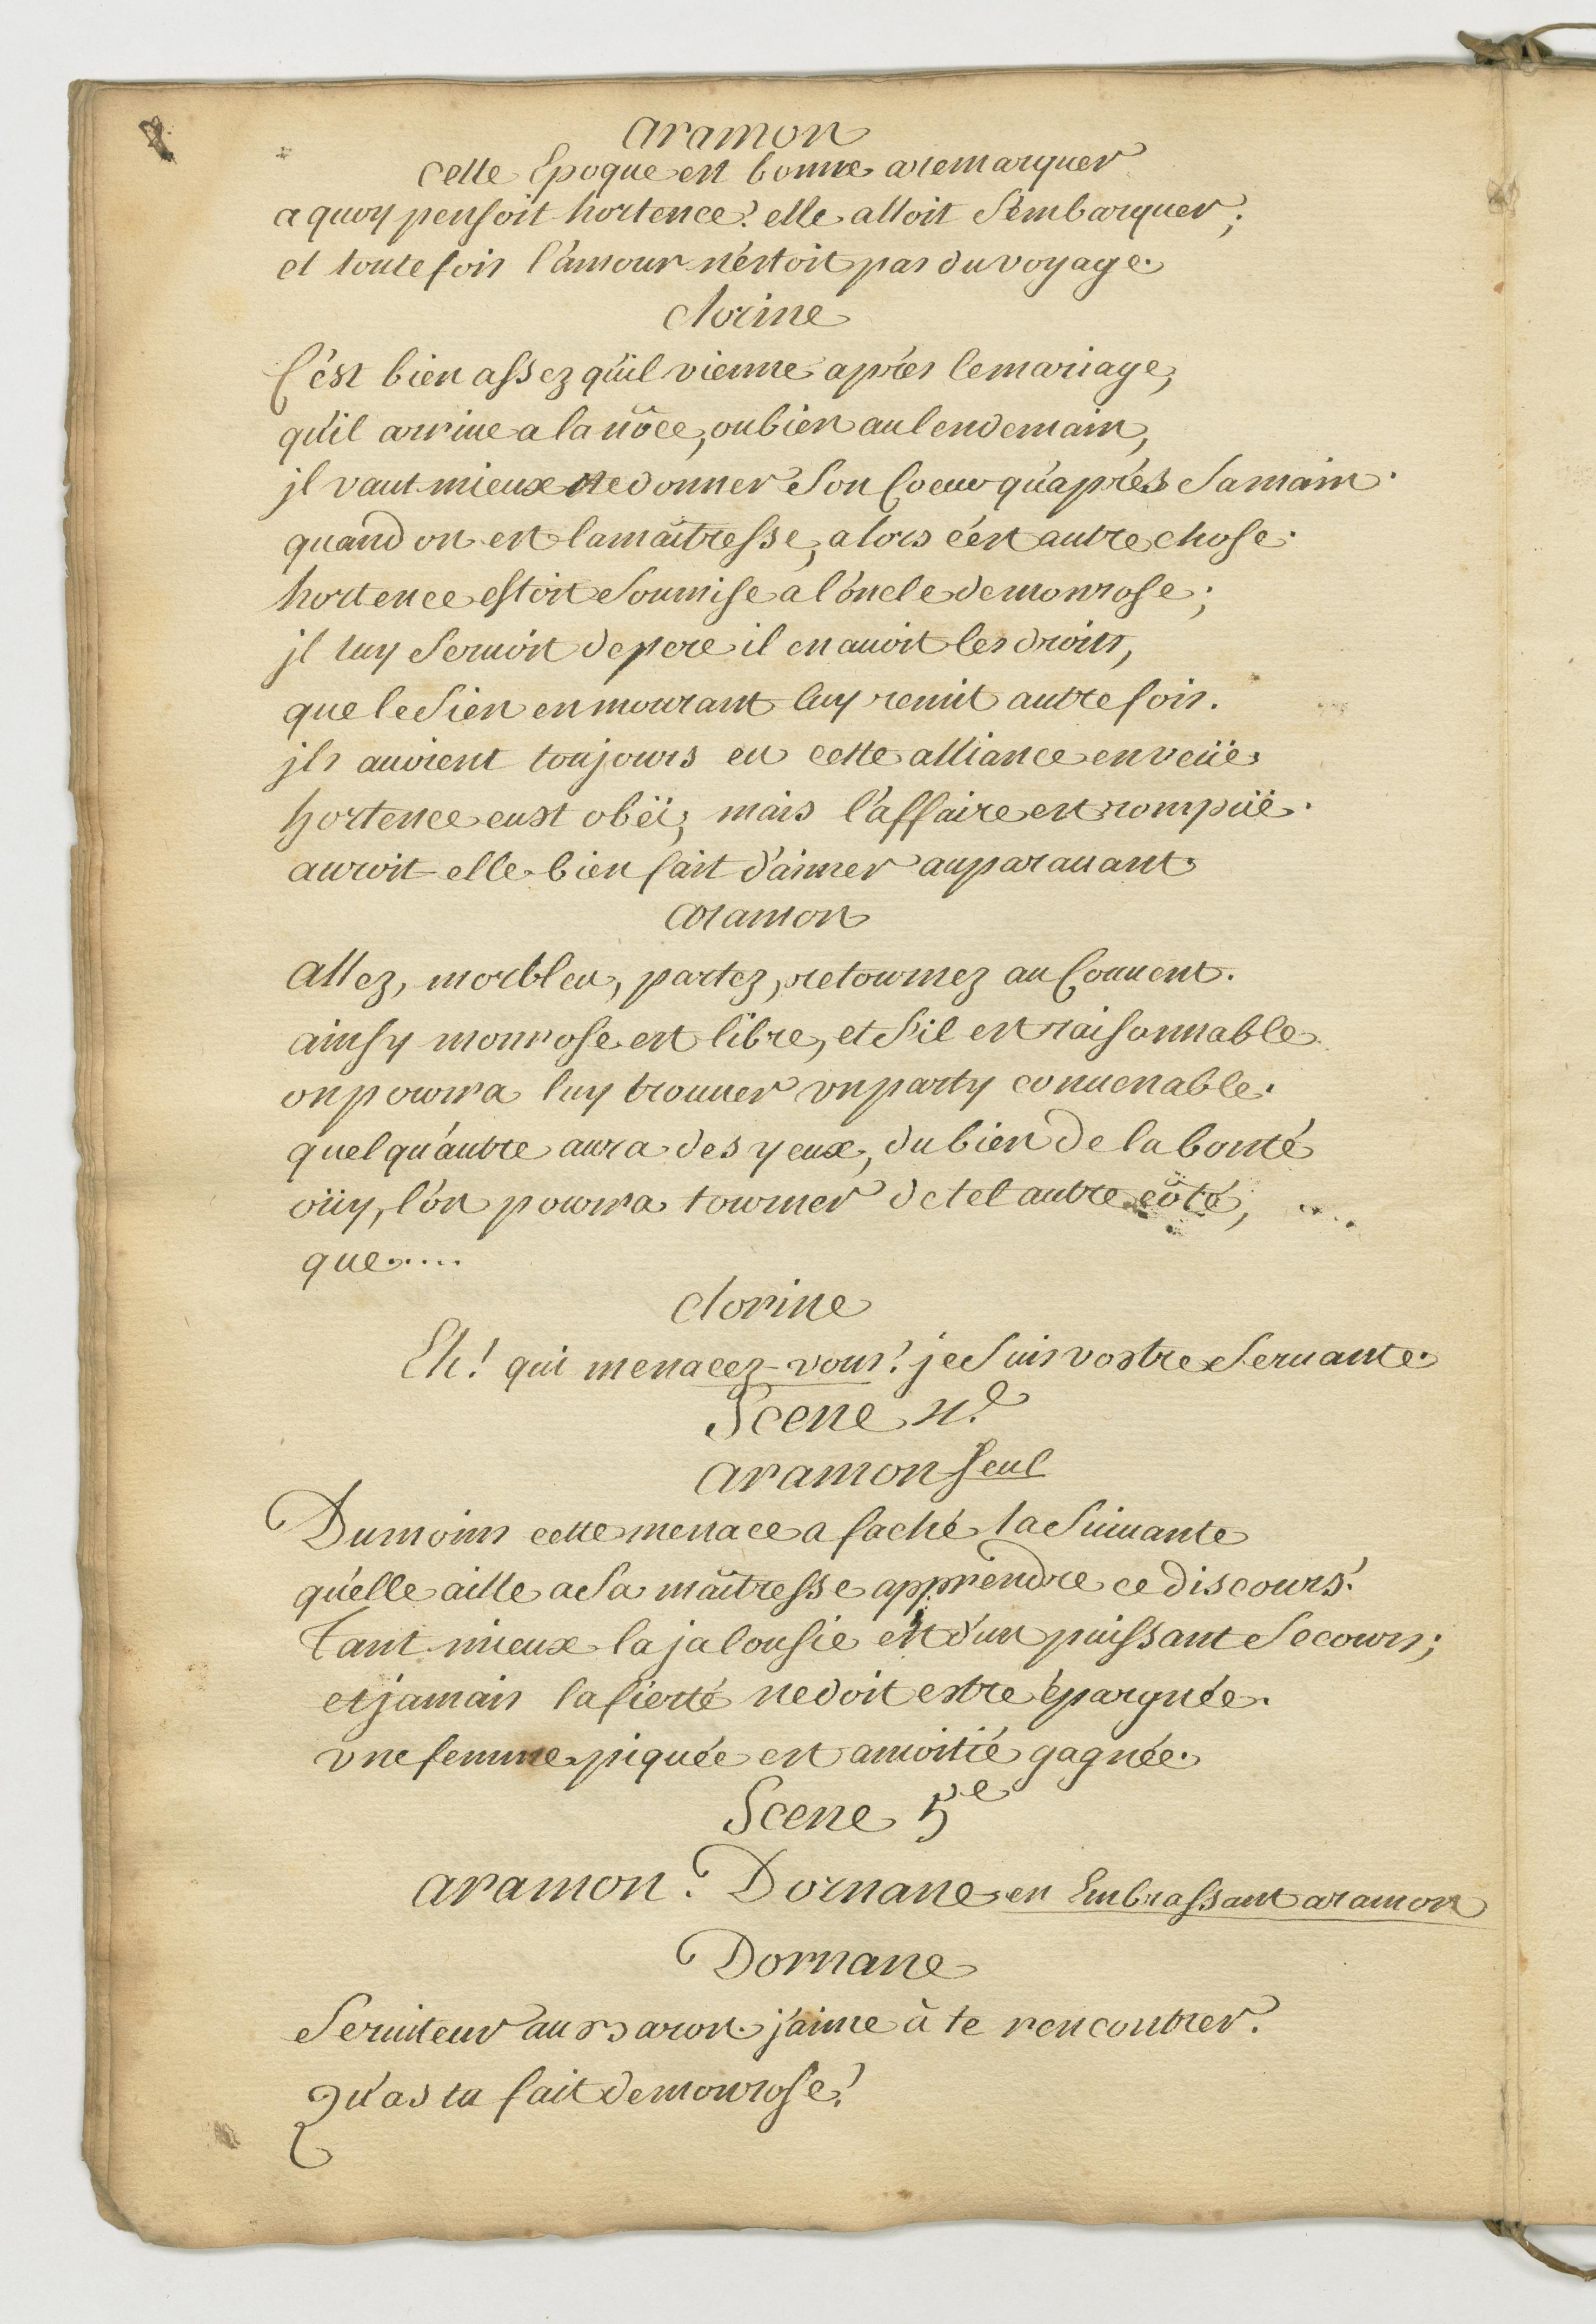 aramon
cette Epoque est bonne a remarquer
a quoy pensoit hortence? elle alloit s'embarquer;
et toute fois l'amour n'estoit pas du voyage.
clorine
C'est bien assez qu'il vienne aprés le mariage,
qu'il arriue a la nôce, ou bien au lendemain,
jl vaut mieux ne donner son Coeur qu'aprés sa main.
quand on est la maîtresse, alors c'est autre chose.
hortence estoit soumise a l'oncle de monrose;
jl luy seruoit de pere il en auoit les droits,
que le sien en mourant luy remit autre fois.
jls auoient toujours eu cette alliance en veüe.
hortence eust obéi; mais l'affaire est rompüe.
auroit elle bien fait d'aimer auparauant
aramon
allez, morbleu, partez, retournez au Couuent.
ainsy monrose est libre, et s'il est raisonnable
on pourra luy trouuer vn party conuenable.
quelqu'autre aura des yeux, du bien de la bonté
oüy, l'on pourra tourner de tel autre côté, ....
que.....
clorine
Eh! qui menacez-vous? je suis vostre seruante.
Scene 4.e
aramon seul
Du moins cette menace a faché la suiuante
qu'elle aille a sa maîtresse apprendre ce discours.
Tant mieux la jalousie est d'un puissant secours;
et jamais la fierté ne doit estre épargnée.
vne femme piquée est a moitié gagnée.
Scene 5e
aramon. Dornane en Embrassant aramon
Dornane
Seruiteur au Baron. j'aime à te rencontrer.
Qu'as tu fait de monrose?